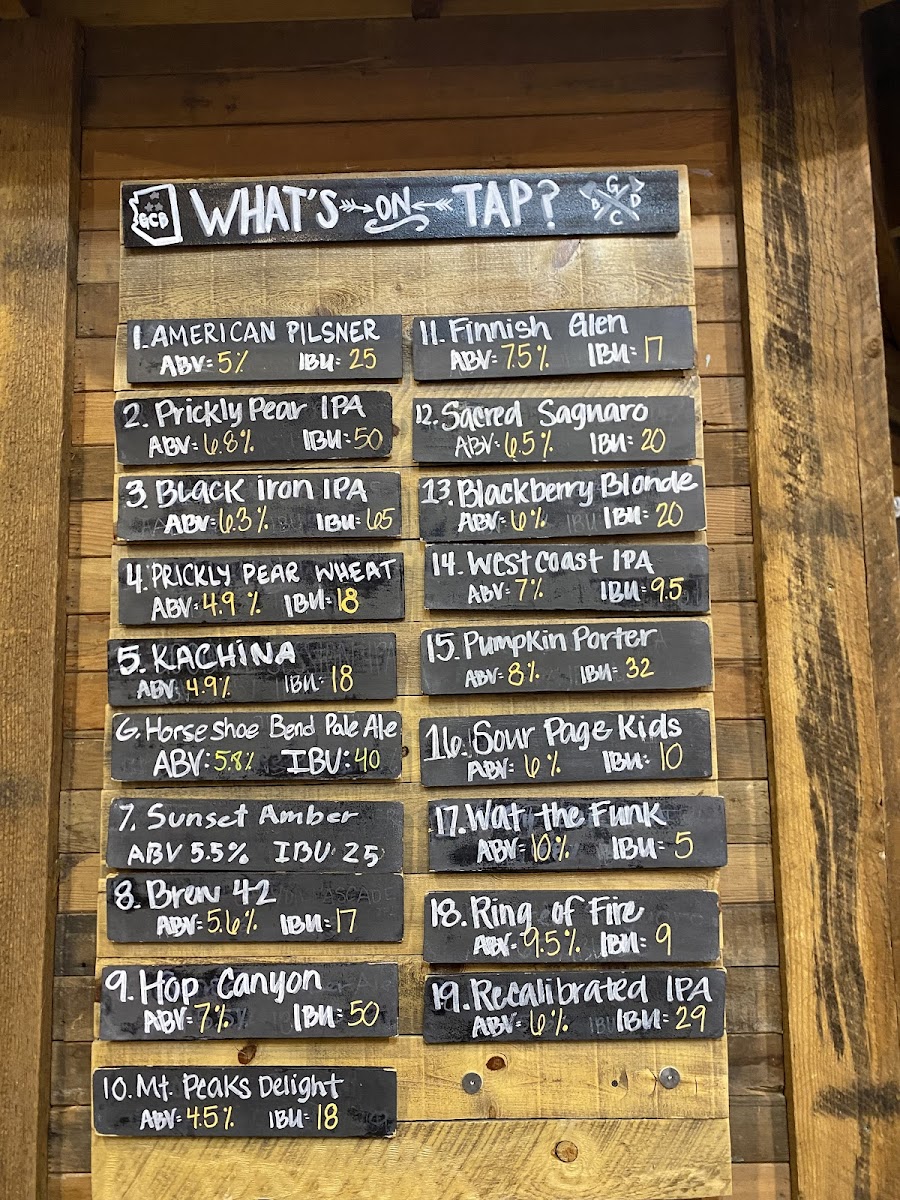 GCB
WHAT'S ON TAP?
G
B D
C
1. AMERICAN PILSNER
ABV= 5% IBU= 25
2. Prickly Pear IPA
ABV= 6.8% IBU= 50
3. Black iron IPA
ABV= 6.3% IBU= 65
4. PRICKLY PEAR WHEAT
ABV= 4.9 % IBU= 18
5. KACHINA
ABV= 4.9% IBU= 18
6. Horseshoe Bend Pale Ale
ABV: 5.8% IBU: 40
7. Sunset Amber
ABV 5.5% IBU 25
8. Brew 42
ABV= 5.6% IBU= 17
9. Hop Canyon
ABV= 7% IBU= 50
10. Mt. Peaks Delight
ABV= 4.5% IBU= 18
11. Finnish Glen
ABV= 7.5% IBU= 17
12. Sacred Saguaro
ABV= 6.5% IBU= 20
13. Blackberry Blonde
ABV= 6% IBU= 20
14. West Coast IPA
ABV= 7% IBU= 9.5
15. Pumpkin Porter
ABV= 8% IBU= 32
16. Sour Page Kids
ABV= 6% IBU= 10
17. Wat the Funk
ABV= 10% IBU= 5
18. Ring of Fire
ABV= 9.5% IBU= 9
19. Recalibrated IPA
ABV= 6% IBU= 29